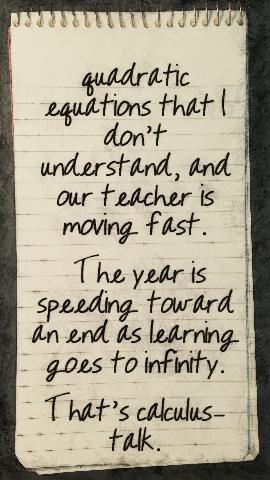 quadratic
equations that I
don't
understand, and
our teacher is
moving fast.
The year is
speeding toward
an end as learning
goes to infinity.
That's calculus-
talk.